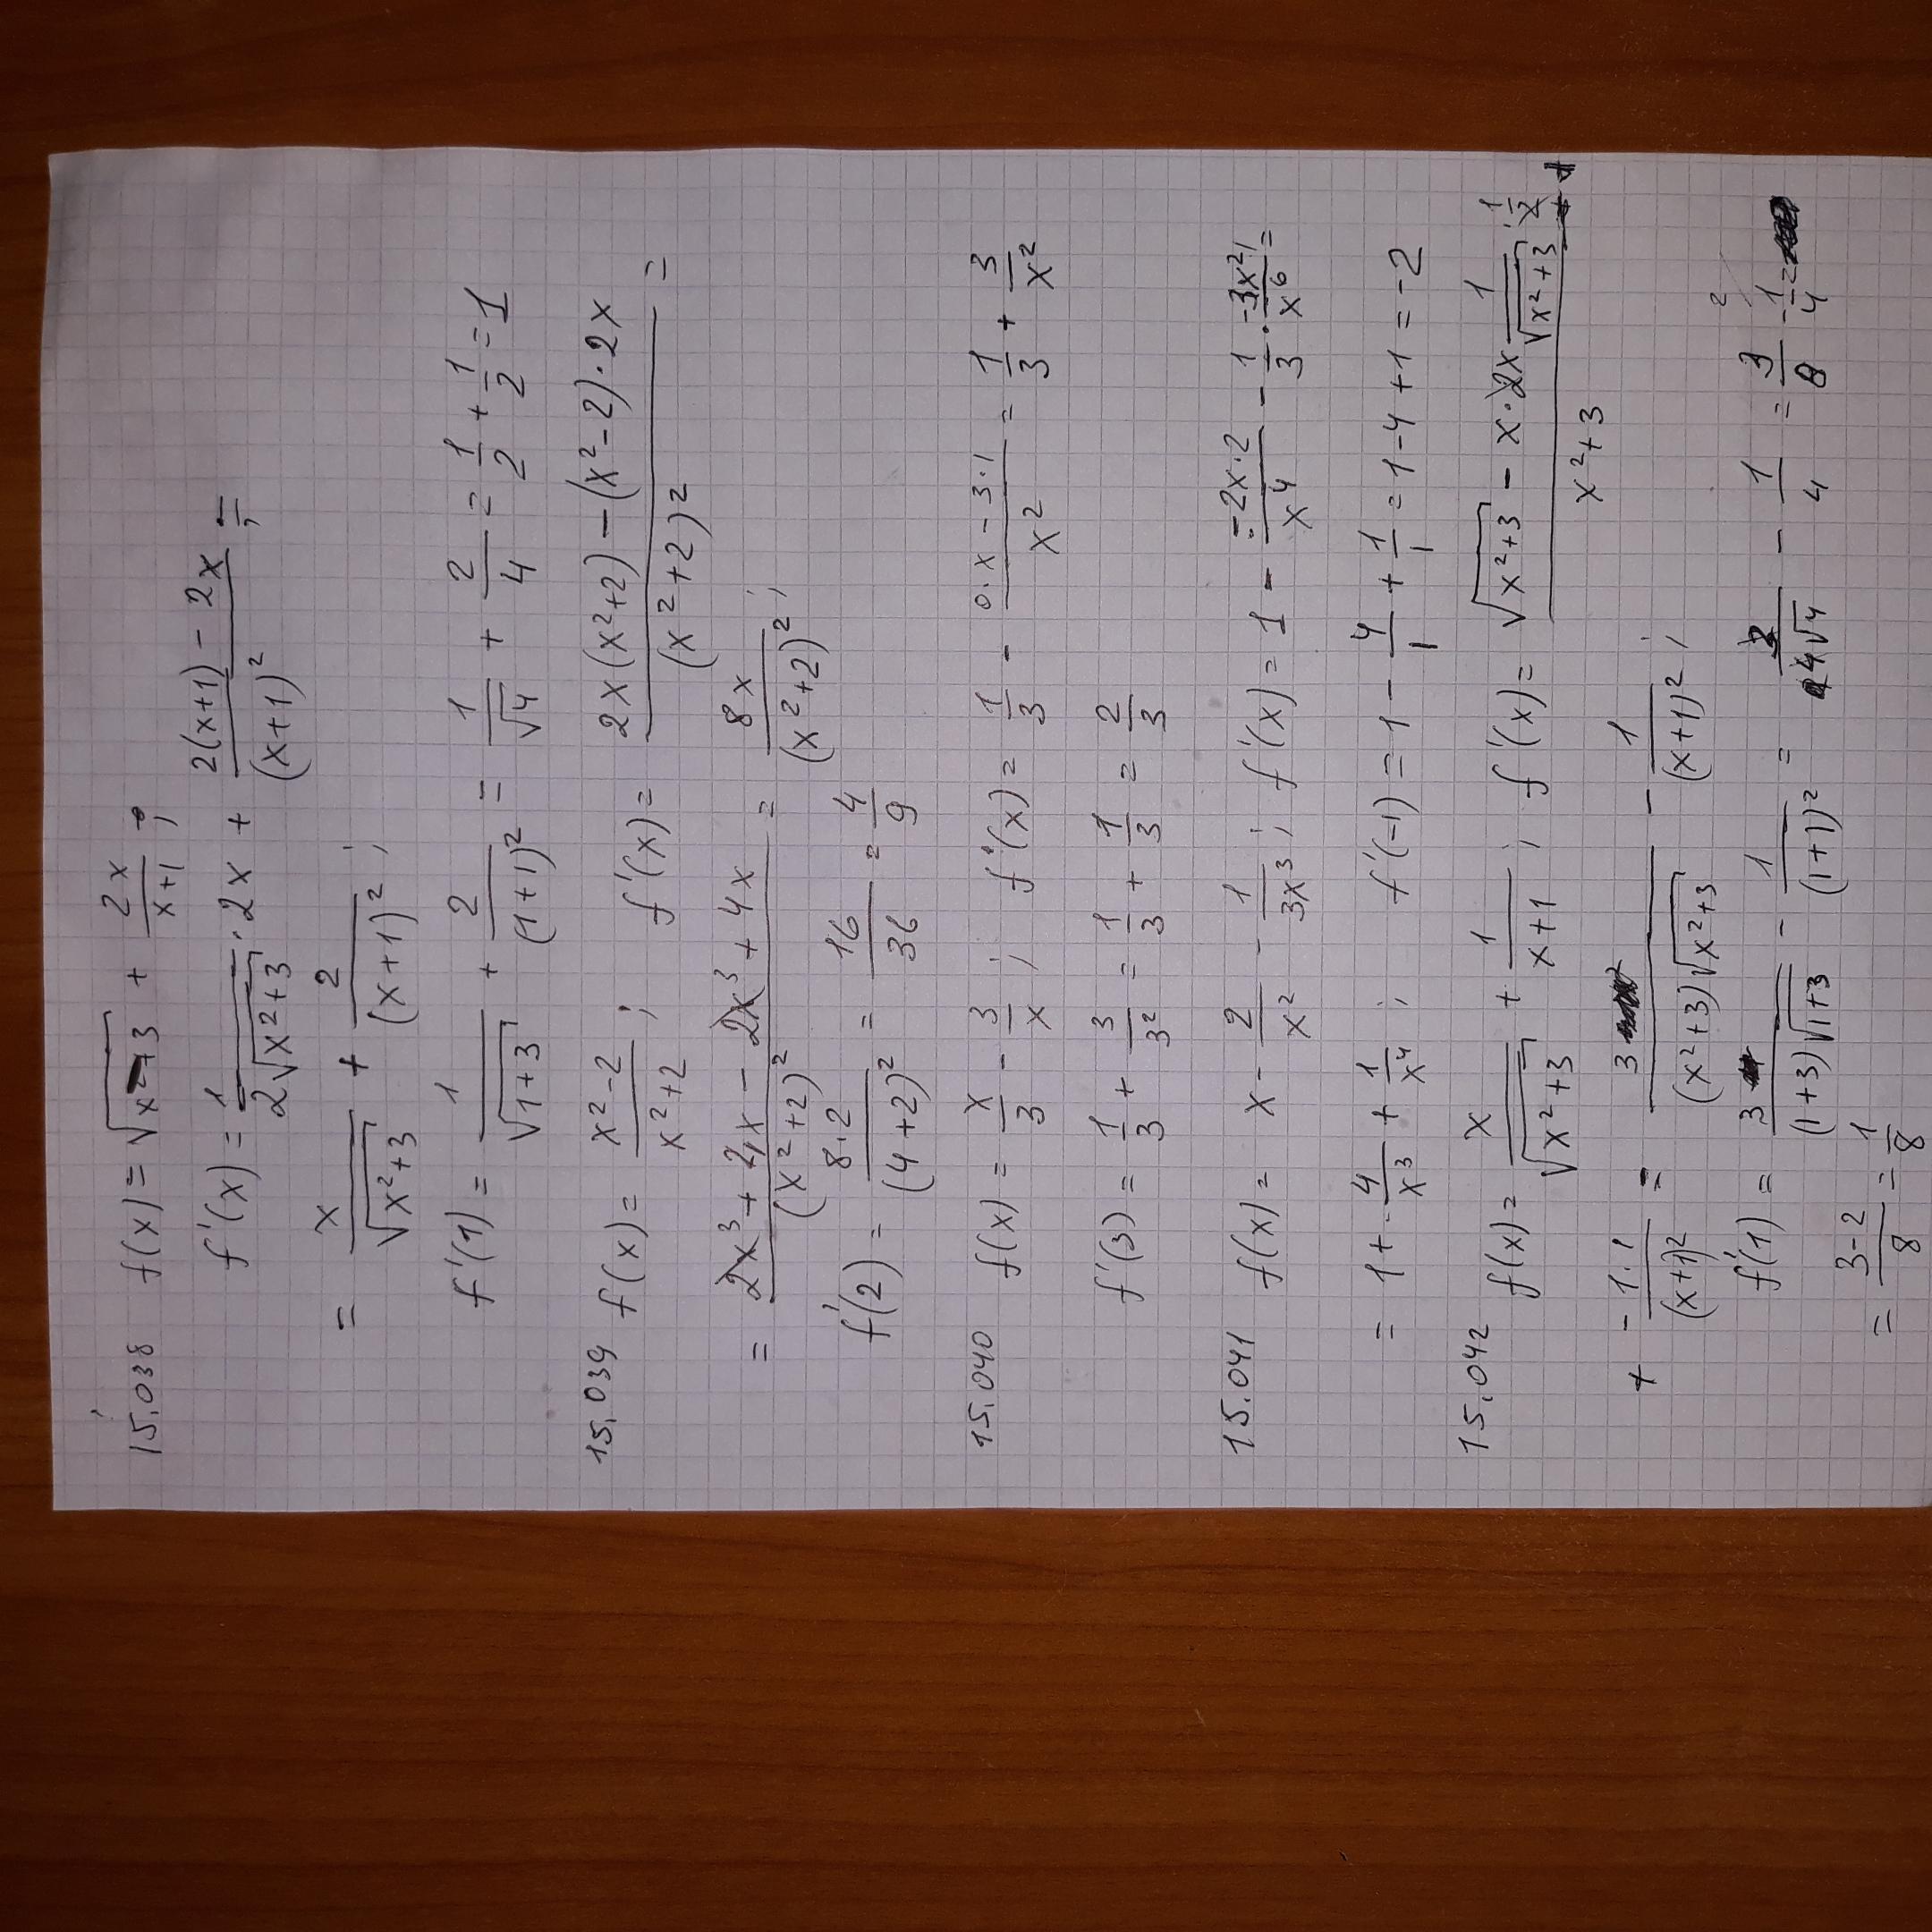 15.038 f(x) = √(x²+3) + 2x/(x+1) ;
f'(x) = 1/(2√(x²+3)) · 2x + (2(x+1) - 2x)/(x+1)² =
= x/√(x²+3) + 2/(x+1)² ;
f'(1) = 1/√(1+3) + 2/(1+1)² = 1/√4 + 2/4 = 1/2 + 1/2 = 1
15.039 f(x) = (x²-2)/(x²+2) ; f'(x) = (2x(x²+2) - (x²-2)·2x)/(x²+2)² =
= (2x³ + 4x - 2x³ + 4x)/(x²+2)² = 8x/(x²+2)² ;
f'(2) = 8·2/(4+2)² = 16/36 = 4/9
15.040 f(x) = x/3 - 3/x ; f'(x) = 1/3 - (0·x - 3·1)/x² = 1/3 + 3/x²
f'(3) = 1/3 + 3/3² = 1/3 + 1/3 = 2/3
15.041 f(x) = x - 2/x² - 1/3x³ ; f'(x) = 1 - (-2x·2)/x⁴ - 1/3 · (-3x²)/x⁶ =
= 1 + 4/x³ + 1/x⁴ ; f'(-1) = 1 - 4/1 + 1/1 = 1-4+1 = -2
15.042 f(x) = x/√(x²+3) + 1/(x+1) ; f'(x) = (√(x²+3) - x·2x · 1/√(x²+3) · 1/2)/(x²+3)
+ (-1·1)/(x+1)² = 3/((x²+3)√(x²+3)) - 1/(x+1)² ;
f'(1) = 3/((1+3)√(1+3)) - 1/(1+1)² = 3/(4√4) - 1/4 = 3/8 - 1/4 =
= (3-2)/8 = 1/8